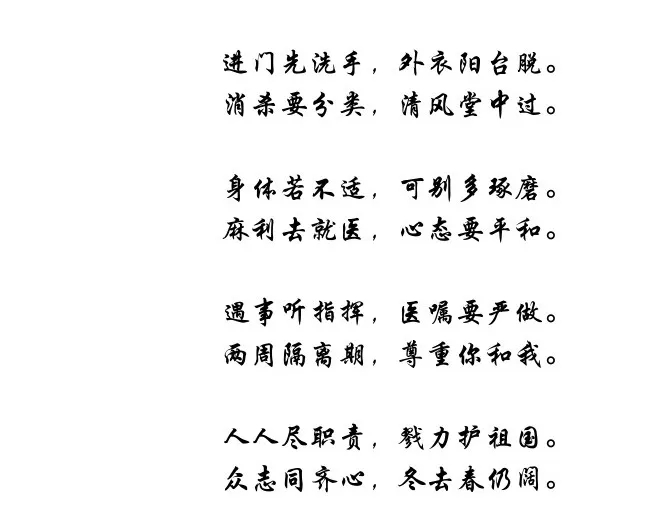 进门先洗手，外衣阳台脱。
消杀要分类，清风堂中过。
身体若不适，可别多琢磨。
麻利去就医，心态要平和。
遇事听指挥，医嘱要严做。
两周隔离期，尊重你和我。
人人尽职责，戮力护祖国。
众志同齐心，冬去春仍阔。